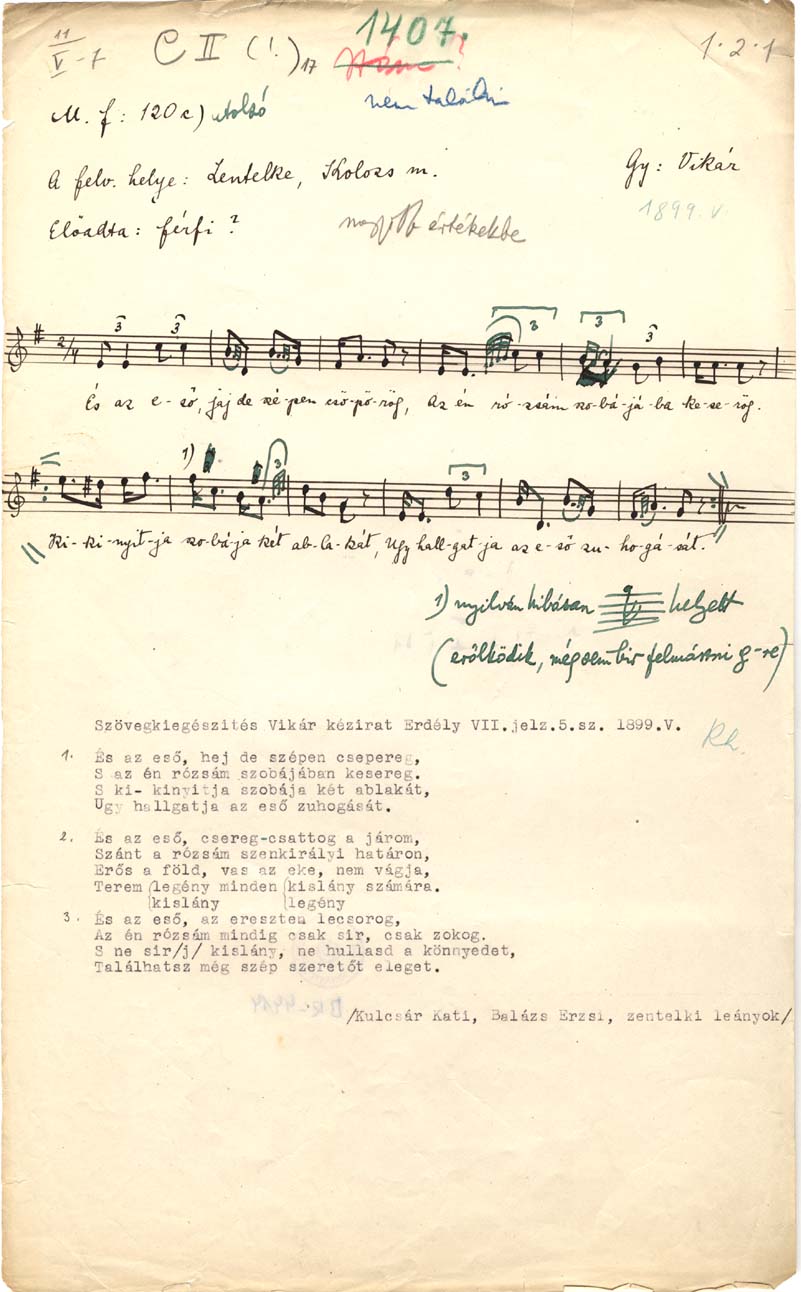 11/V - 7 C II (!.) 17 1407. 1·2·1
nem találni
M. f: 120 c) utolsó
A felv. helye: Zentelke, Kolozs m. Gy: Vikár
1899. V
Előadta: férfi? nagyobb értékekbe
És az e-ső, jaj de szé-pen csö-pö-rög, Az én ró-zsám szo-bá-já-ba ke-se-rög.
1)
Ki-ki-nyit-ja szo-bá-ja két ab-la-kát, Ugy hall-gat-ja az e-ső zu-ho-gá-sát.
1) nyilván hibásan helyett
(erőlködik, mégsem bir felmászni g-re)
Szövegkiegészités Vikár kézirat Erdély VII.jelz.5.sz. 1899.V.
Rh.
1. És az eső, hej de szépen csepereg,
S az én rózsám szobájában kesereg.
S ki- kinyitja szobája két ablakát,
Ugy hallgatja az eső zuhogását.
2. És az eső, csereg-csattog a járom,
Szánt a rózsám szenkirályi határon,
Erős a föld, vas az eke, nem vágja,
Terem (legény minden (kislány számára.
(kislány (legény
3. És az eső, az eresztem lecsorog,
Az én rózsám mindig csak sir, csak zokog.
S ne sir/j/ kislány, ne hullasd a könnyedet,
Találhatsz még szép szeretőt eleget.
/Kulcsár Kati, Balázs Erzsi, zentelki leányok/